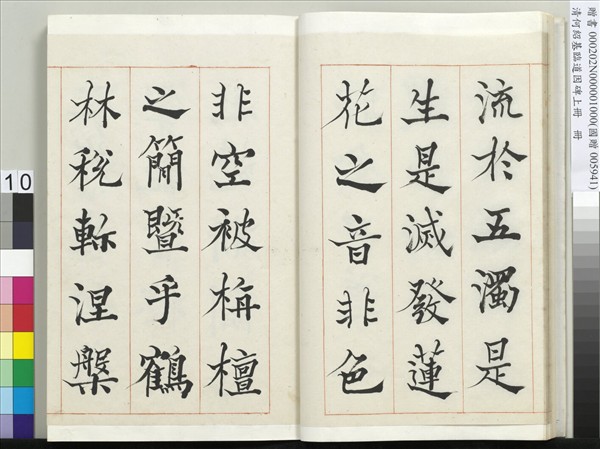 贈書 000202N000001000(國贈 005941)
清何紹基臨道因碑上冊 冊
流於五濁是
生是滅發蓮
花之音非色
非空被栴檀
之簡暨乎鶴
林稅軫涅槃
10